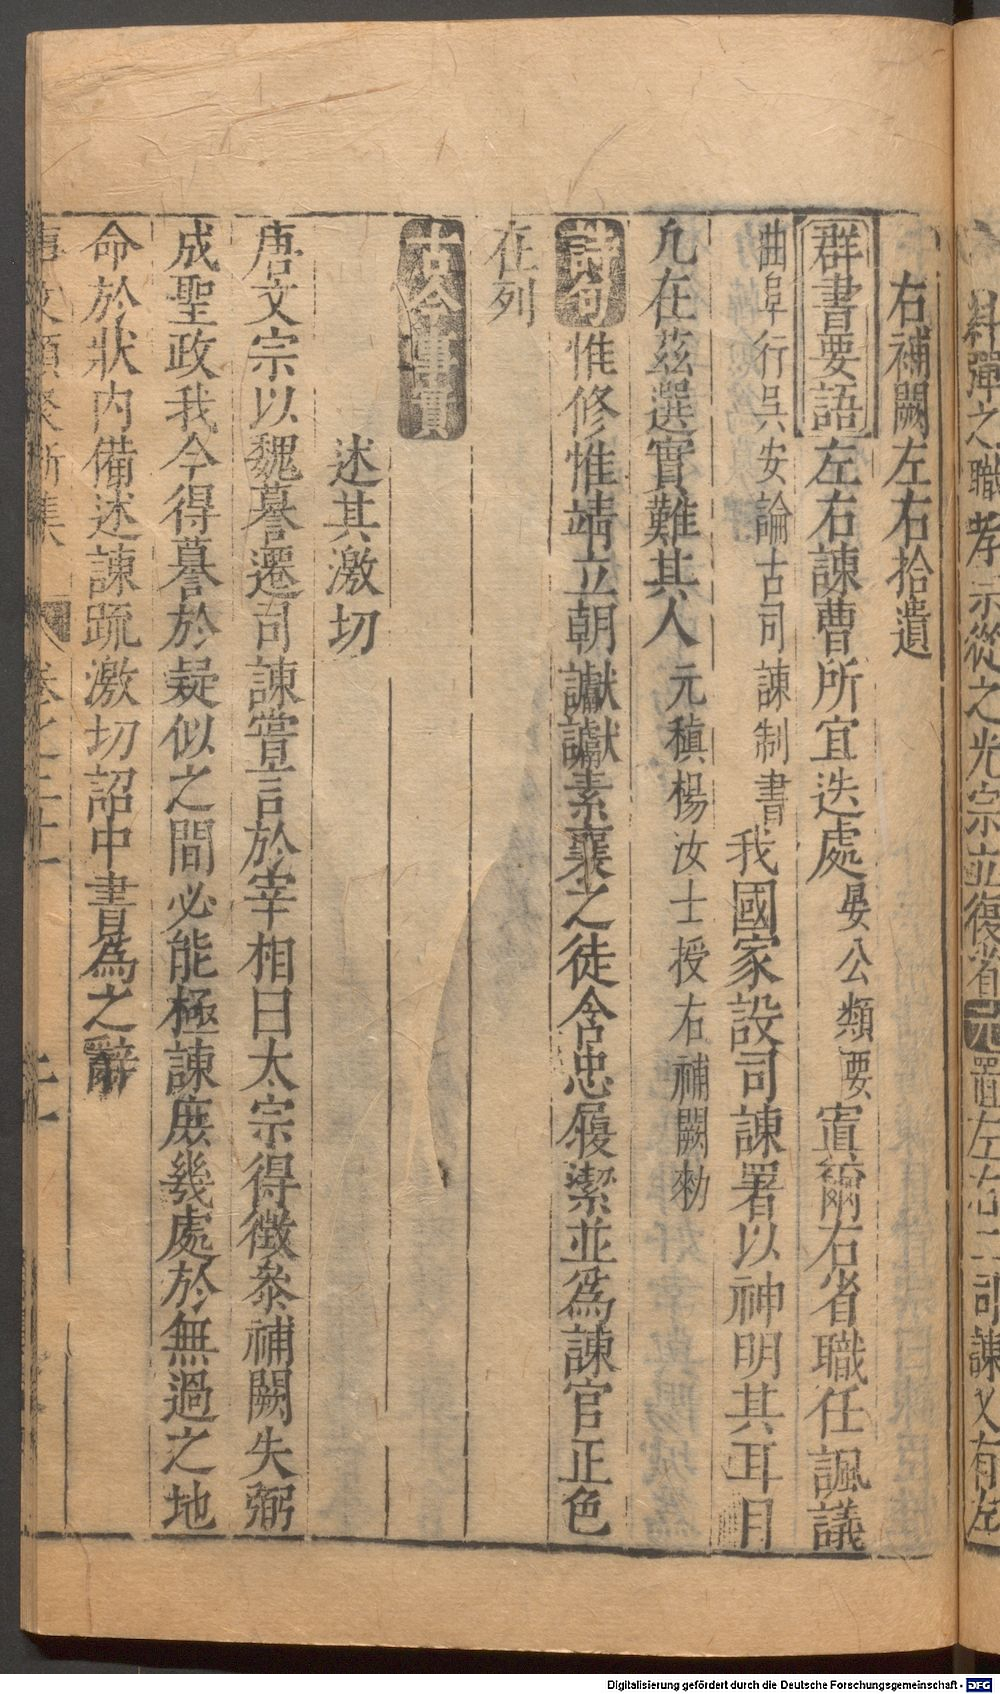 其彈之職孝宗從之光宗並復省元置左右二司諫又有左
右補闕左右拾遺
群書要語左右諫曹所宜迭處晏公類要寘爾右省職任諷議
曲阜行吳安論古司諫制書我國家設司諫署以神明其耳目
允在茲選實難其人元稹楊汝士授右補闕勑
詩句惟修惟靖立朝讞讞素襄之徒含忠履潔並爲諫官正色
在列
古今事實
述其激切
唐文宗以魏謩遷司諫嘗言於宰相曰太宗得徵叅補闕失弼
成聖政我今得謩於疑似之間必能極諫庶幾處於無過之地
命於狀內備述諫疏激切詔中書爲之辭
事文類聚新集 卷之二十一
Digitalisierung gefördert durch die Deutsche Forschungsgemeinschaft - DFG